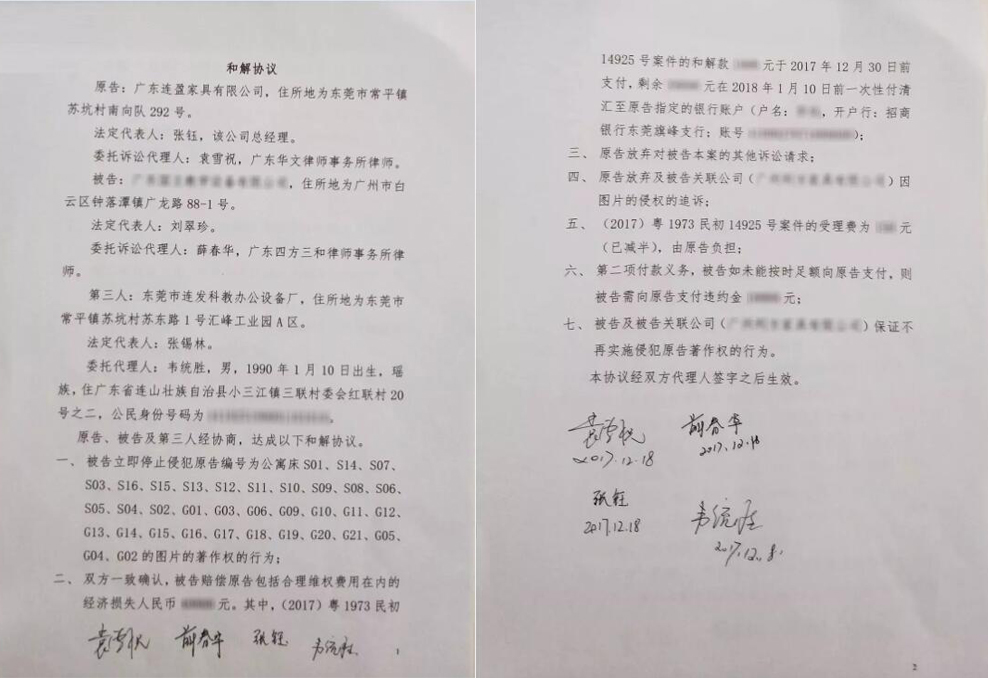 和解协议
原告：广东连盈家具有限公司，住所地为东莞市常平镇
苏坑村南向队 292 号。
法定代表人：张钰，该公司总经理。
委托诉讼代理人：袁雪祝，广东华文律师事务所律师。
被告：，住所地为广州市白
云区钟落潭镇广龙路 88-1 号。
法定代表人：刘翠珍。
委托诉讼代理人：薛春华，广东四方三和律师事务所律
师。
第三人：东莞市连发科教办公设备厂，住所地为东莞市
常平镇苏坑村苏东路 1 号汇峰工业园 A 区。
法定代表人：张锡林。
委托代理人：韦统胜，男，1990 年 1 月 10 日出生，瑶
族，住广东省连山壮族自治县小三江镇三联村委会红联村 20
号之二，公民身份号码为。
原告、被告及第三人经协商，达成以下和解协议。
一、被告立即停止侵犯原告编号为公寓床 S01、S14、S07、
S03、S16、S15、S13、S12、S11、S10、S09、S08、S06、
S05、S04、S02、G01、G03、G06、G09、G10、G11、G12、
G13、G14、G15、G16、G17、G18、G19、G20、G21、G05、
G04、G02 的图片的著作权的行为；
二、双方一致确认，被告赔偿原告包括合理维权费用在内的
经济损失人民币元。其中，（2017）粤 1973 民初
袁雪祝 薛春华 张钰 韦统胜
1
14925 号案件的和解款元于 2017 年 12 月 30 日前
支付，剩余元在 2018 年 1 月 10 日前一次性付清
汇至原告指定的银行账户（户名：，开户行：招商
银行东莞旗峰支行；账号）；
三、原告放弃对被告本案的其他诉讼请求；
四、原告放弃及被告关联公司（）因
图片的侵权的追诉；
五、（2017）粤 1973 民初 14925 号案件的受理费为元
（已减半），由原告负担；
六、第二项付款义务，被告如未能按时足额向原告支付，则
被告需向原告支付违约金元；
七、被告及被告关联公司（）保证不
再实施侵犯原告著作权的行为。
本协议经双方代理人签字之后生效。
袁雪祝 薛春华
2017.12.18 2017.12.18
张钰 韦统胜
2017.12.18 2017.12.18.
2